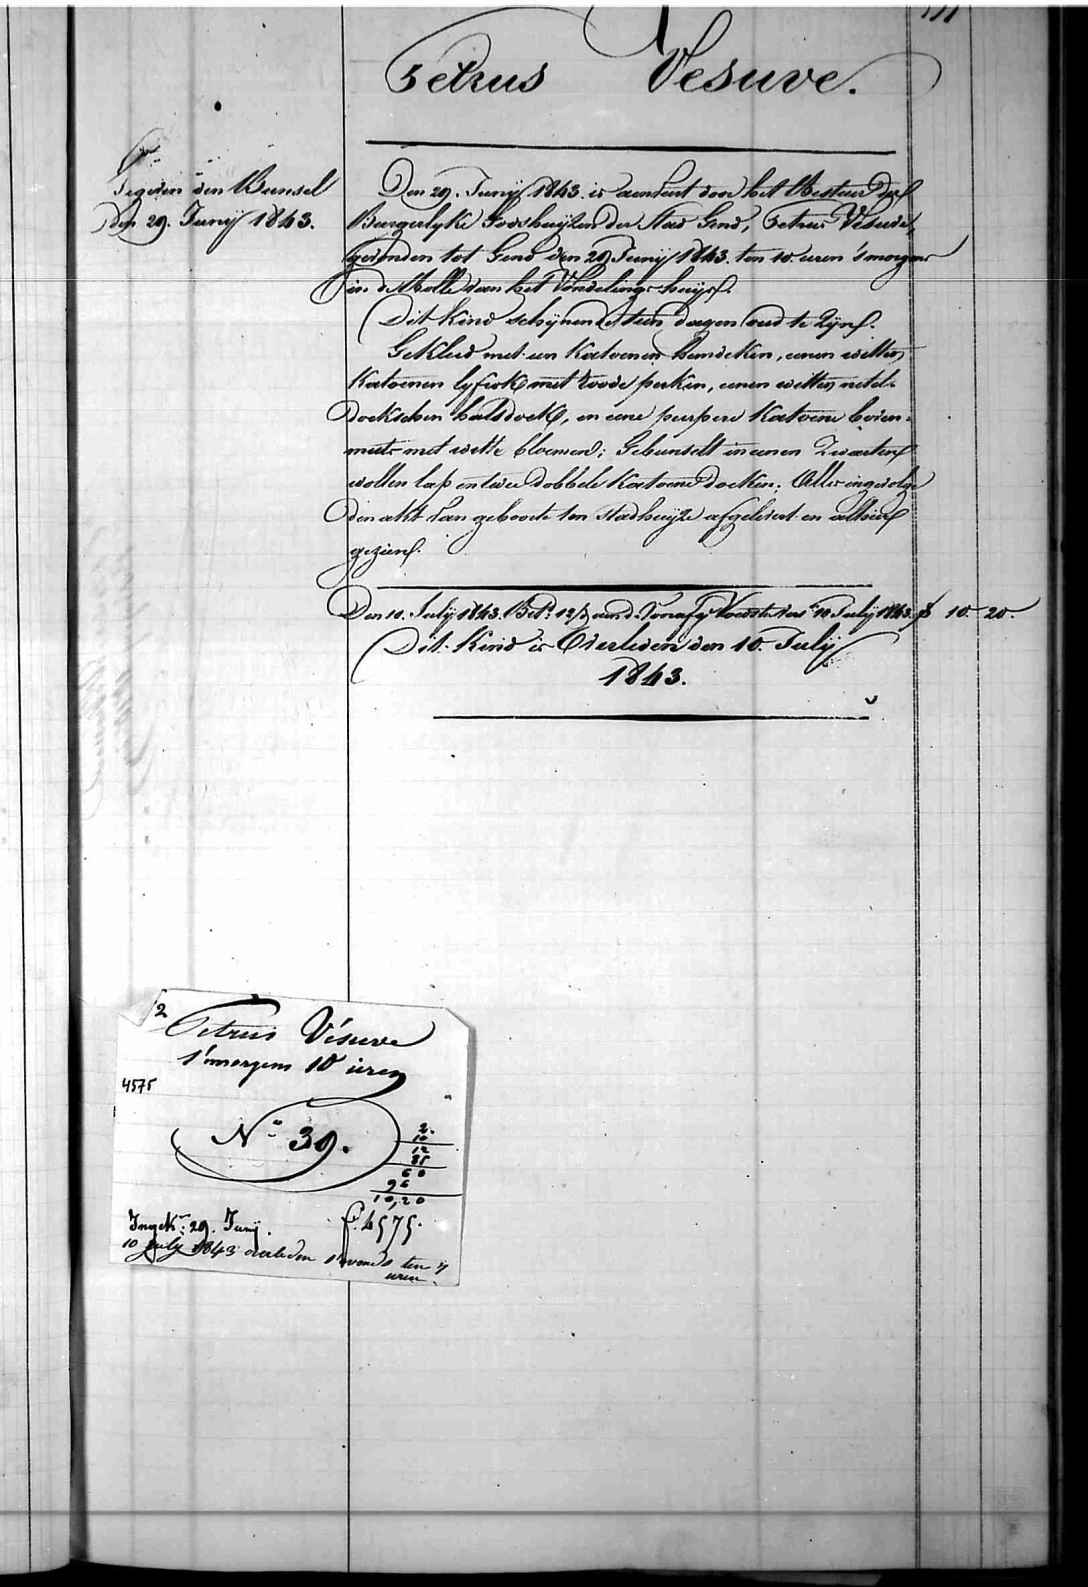 Petrus Vesuve.
Tegoven den Bunsel
den 29. Junij 1843.
Den 29. Junij 1843. is aenveirt door het Bestuer der
Burgerlyke Godshuijzen der Stad Gend, Petrus Vesuve,
gevonden tot Gend den 29 Junij 1843. ten 10 uren 's morgens
in de Rolle van het Vondelings-huijs.
Dit kind schijnende tien dagen oud te Zijn.
Gekleed met een Katoenen hemdeken, eenen witten
Katoenen lyfrok met roode perken, eenen witten netel-
doekschen halsdoek, en eene purpere Katoene boven-
muts met witte bloemen; Gebunselt in eenen Zwarten
wollen lap en twee dobbele Katoene doeken. Alles ingevolge
den akt van geboorte ten stadhuijze afgelevert en alhier
gezien.
Den 10. July 1843. Bet. 12 10 July 1843. 10 - 20.
Dit Kind is Overleden den 10. July
1843.
2
Petrus Vésuve
s'morgens 10 uren
4575
N° 39.
2.
10
12
85
60
96
10,20
Ingek: 29. Junij.
f. 4575.
10 July 1843 overleden s'avonds ten 7
uren